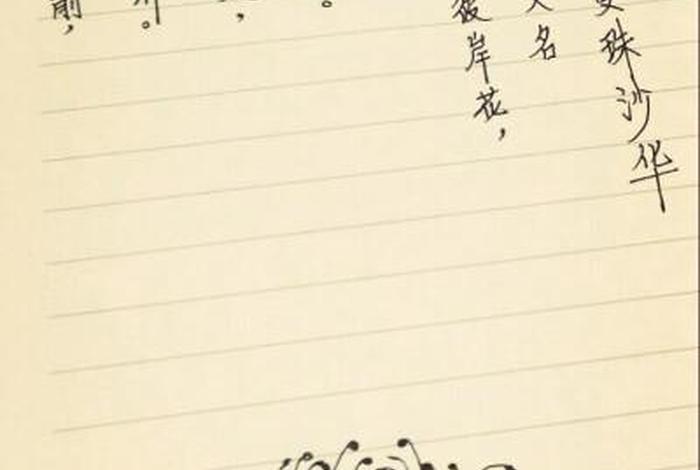 珠沙华
名
彼岸花，
。
，
。
前，